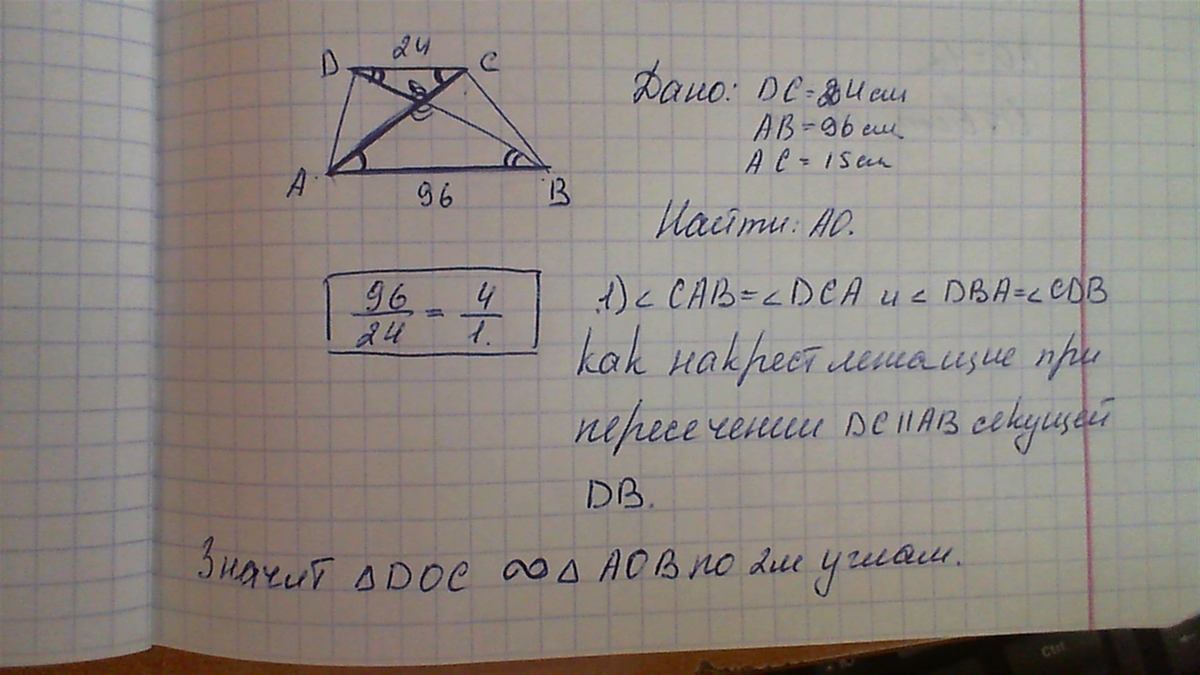 24
D C
O
A B
96
Дано: DC = 24 см
AB = 96 см
AC = 15 см
Найти: AO.
96/24 = 4/1.
1) < CAB = < DCA и < DBA = < CDB
как накрест лежащие при
пересечении DC || AB секущей
DB.
Значит △ DOC ∞ △ AOB по 2м углам.
Ctrl